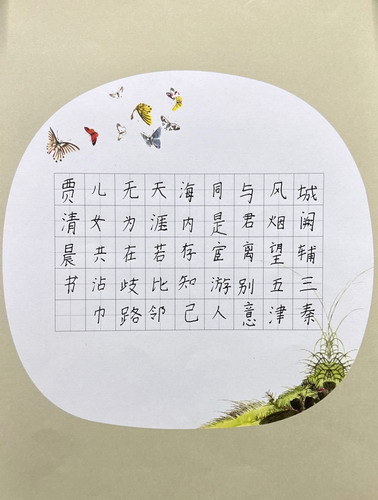 城阙辅三秦
风烟望五津
与君离别意
同是宦游人
海内存知己
天涯若比邻
无为在歧路
儿女共沾巾
贾清晨书